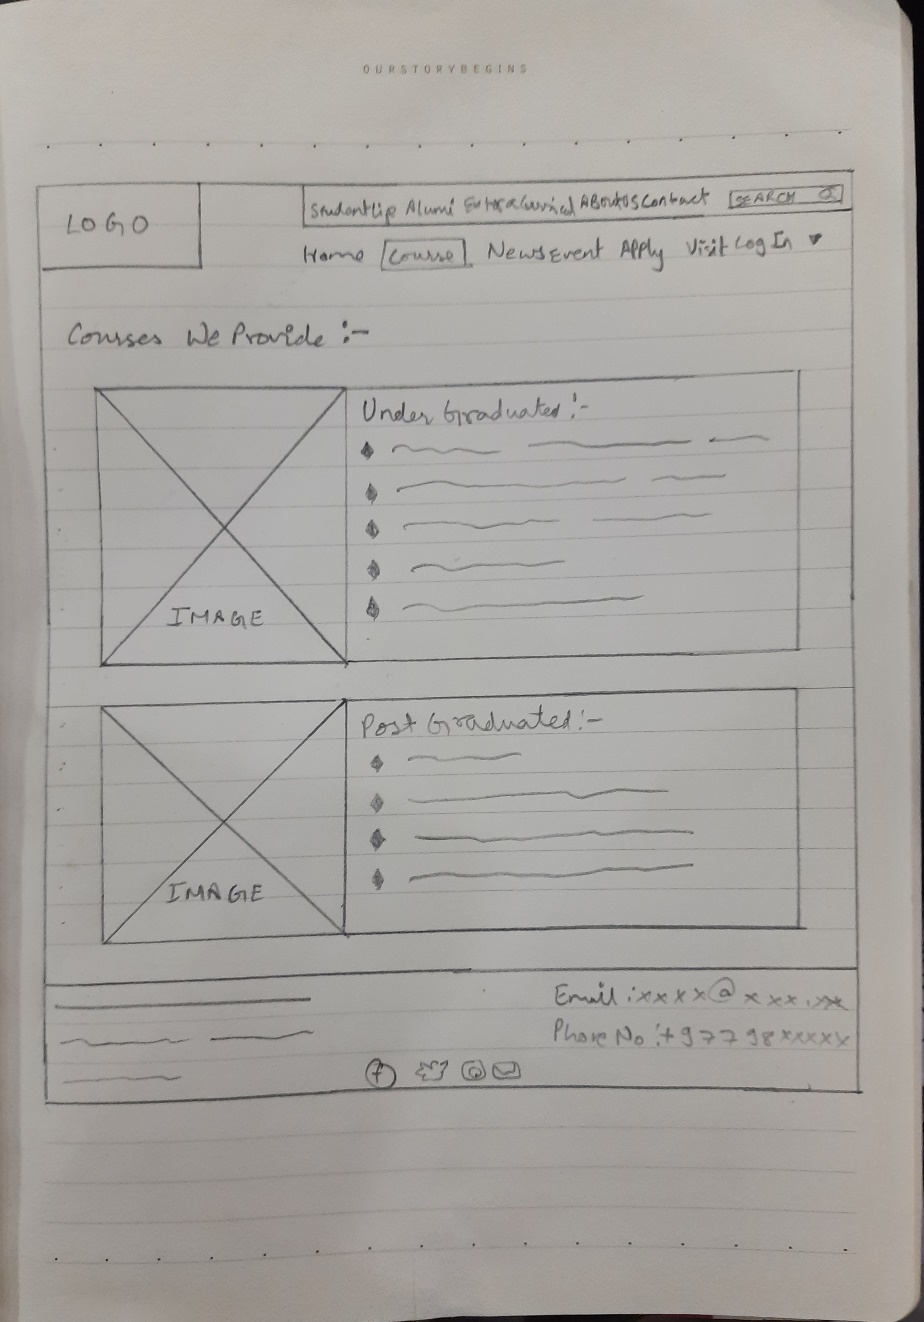 OURSTORYBEGINS
LOGO
StudentLip Alumi ExtraCurrical AboutUs Contact SEARCH
Home Course News Event Apply Visit Log In
Courses We Provide :-
Under Graduated :-
IMAGE
Post Graduated :-
IMAGE
Email : xxxx@xxx.xx
Phone No : +97798xxxxx
f